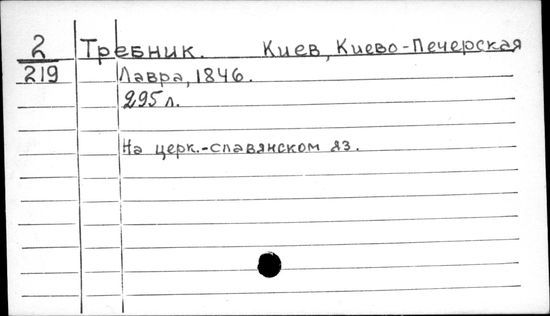 2 Требник. Киев, Киево-Печерская
219 Лавра, 1846.
295 л.
На церк.-славянском яз.